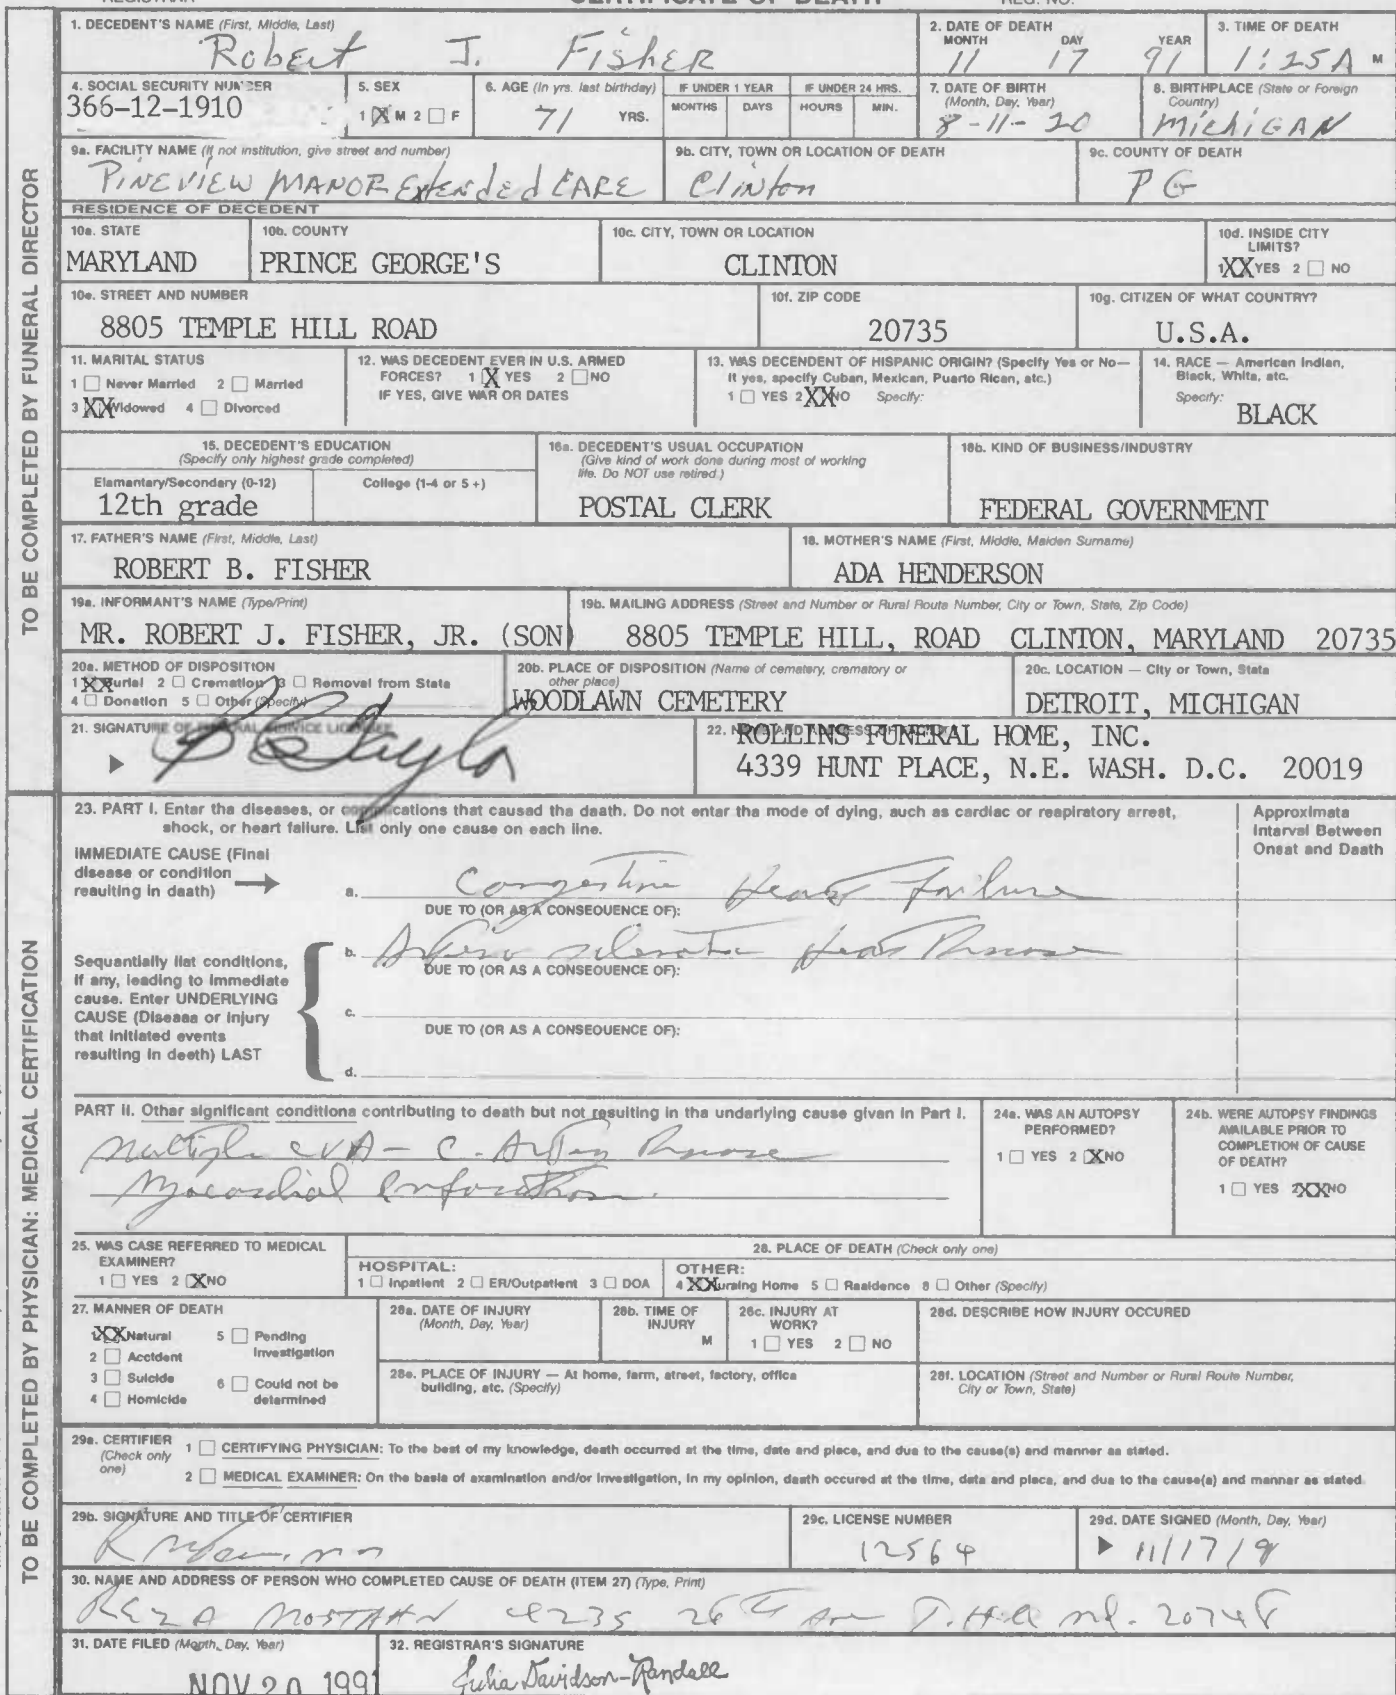 CERTIFICATE OF DEATH
REGISTRAR
REG. NO.
TO BE COMPLETED BY FUNERAL DIRECTOR
1. DECEDENT'S NAME (First, Middle, Last)
Robert J. Fisher
2. DATE OF DEATH
MONTH DAY YEAR
11 17 91
3. TIME OF DEATH
1:25A M
4. SOCIAL SECURITY NUMBER
366-12-1910
5. SEX
1 X M 2 F
6. AGE (In yrs. last birthday)
71 YRS.
IF UNDER 1 YEAR
MONTHS DAYS
IF UNDER 24 HRS.
HOURS MIN.
7. DATE OF BIRTH
(Month, Day, Year)
8-11-20
8. BIRTHPLACE (State or Foreign
Country)
MichiGAN
9a. FACILITY NAME (If not institution, give street and number)
PINEVIEW MANOR Extended CARE
9b. CITY, TOWN OR LOCATION OF DEATH
Clinton
9c. COUNTY OF DEATH
PG
RESIDENCE OF DECEDENT
10a. STATE
MARYLAND
10b. COUNTY
PRINCE GEORGE'S
10c. CITY, TOWN OR LOCATION
CLINTON
10d. INSIDE CITY
LIMITS?
1 XX YES 2 NO
10e. STREET AND NUMBER
8805 TEMPLE HILL ROAD
10f. ZIP CODE
20735
10g. CITIZEN OF WHAT COUNTRY?
U.S.A.
11. MARITAL STATUS
1 Never Married 2 Married
3 XX Widowed 4 Divorced
12. WAS DECEDENT EVER IN U.S. ARMED
FORCES? 1 X YES 2 NO
IF YES, GIVE WAR OR DATES
13. WAS DECENDENT OF HISPANIC ORIGIN? (Specify Yes or No—
If yes, specify Cuban, Mexican, Puerto Rican, etc.)
1 YES 2 XX NO Specify:
14. RACE — American Indian,
Black, White, etc.
Specify:
BLACK
15. DECEDENT'S EDUCATION
(Specify only highest grade completed)
Elementary/Secondary (0-12) College (1-4 or 5+)
12th grade
16a. DECEDENT'S USUAL OCCUPATION
(Give kind of work done during most of working
life. Do NOT use retired.)
POSTAL CLERK
16b. KIND OF BUSINESS/INDUSTRY
FEDERAL GOVERNMENT
17. FATHER'S NAME (First, Middle, Last)
ROBERT B. FISHER
18. MOTHER'S NAME (First, Middle, Maiden Surname)
ADA HENDERSON
19a. INFORMANT'S NAME (Type/Print)
MR. ROBERT J. FISHER, JR. (SON)
19b. MAILING ADDRESS (Street and Number or Rural Route Number, City or Town, State, Zip Code)
8805 TEMPLE HILL, ROAD CLINTON, MARYLAND 20735
20a. METHOD OF DISPOSITION
1 XX Burial 2 Cremation 3 Removal from State
4 Donation 5 Other (Specify)
20b. PLACE OF DISPOSITION (Name of cemetery, crematory or
other place)
WOODLAWN CEMETERY
20c. LOCATION — City or Town, State
DETROIT, MICHIGAN
21. SIGNATURE OF FUNERAL SERVICE LICENSEE
22.
ROLLINS FUNERAL HOME, INC.
4339 HUNT PLACE, N.E. WASH. D.C. 20019
TO BE COMPLETED BY PHYSICIAN: MEDICAL CERTIFICATION
23. PART I. Enter the diseases, or complications that caused the death. Do not enter the mode of dying, such as cardiac or respiratory arrest,
shock, or heart failure. List only one cause on each line.
Approximate
Interval Between
Onset and Death
IMMEDIATE CAUSE (Final
disease or condition
resulting in death)
a. Congestive Heart Failure
DUE TO (OR AS A CONSEQUENCE OF):
Sequentially list conditions,
if any, leading to immediate
cause. Enter UNDERLYING
CAUSE (Disease or injury
that initiated events
resulting in death) LAST
b. Arterio sclerotic Heart Disease
DUE TO (OR AS A CONSEQUENCE OF):
c.
DUE TO (OR AS A CONSEQUENCE OF):
d.
PART II. Other significant conditions contributing to death but not resulting in the underlying cause given in Part I.
Multiple CVA - C. Artery Disease
Myocardial Infarction.
24a. WAS AN AUTOPSY
PERFORMED?
1 YES 2 X NO
24b. WERE AUTOPSY FINDINGS
AVAILABLE PRIOR TO
COMPLETION OF CAUSE
OF DEATH?
1 YES 2 XX NO
25. WAS CASE REFERRED TO MEDICAL
EXAMINER?
1 YES 2 X NO
26. PLACE OF DEATH (Check only one)
HOSPITAL:
1 Inpatient 2 ER/Outpatient 3 DOA
OTHER:
4 XX Nursing Home 5 Residence 6 Other (Specify)
27. MANNER OF DEATH
1 XX Natural 5 Pending
Investigation
2 Accident
3 Suicide 6 Could not be
determined
4 Homicide
28a. DATE OF INJURY
(Month, Day, Year)
28b. TIME OF
INJURY
M
28c. INJURY AT
WORK?
1 YES 2 NO
28d. DESCRIBE HOW INJURY OCCURED
28e. PLACE OF INJURY — At home, farm, street, factory, office
building, etc. (Specify)
28f. LOCATION (Street and Number or Rural Route Number,
City or Town, State)
29a. CERTIFIER
(Check only
one)
1 CERTIFYING PHYSICIAN: To the best of my knowledge, death occurred at the time, date and place, and due to the cause(s) and manner as stated.
2 MEDICAL EXAMINER: On the basis of examination and/or investigation, in my opinion, death occured at the time, date and place, and due to the cause(s) and manner as stated.
29b. SIGNATURE AND TITLE OF CERTIFIER
29c. LICENSE NUMBER
12564
29d. DATE SIGNED (Month, Day, Year)
11/17/9
30. NAME AND ADDRESS OF PERSON WHO COMPLETED CAUSE OF DEATH (ITEM 27) (Type, Print)
REZA MOSTAHN 4235 28th Ave T. Hill Md. 20748
31. DATE FILED (Month, Day, Year)
NOV 20 1991
32. REGISTRAR'S SIGNATURE
Julia Davidson-Randall